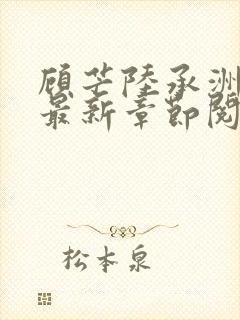 顾芒陆承洲
最新章节阅
松本泉